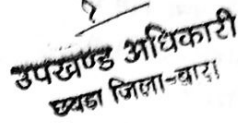 उपखण्ड अधिकारी
छबड़ा जिला-बारां